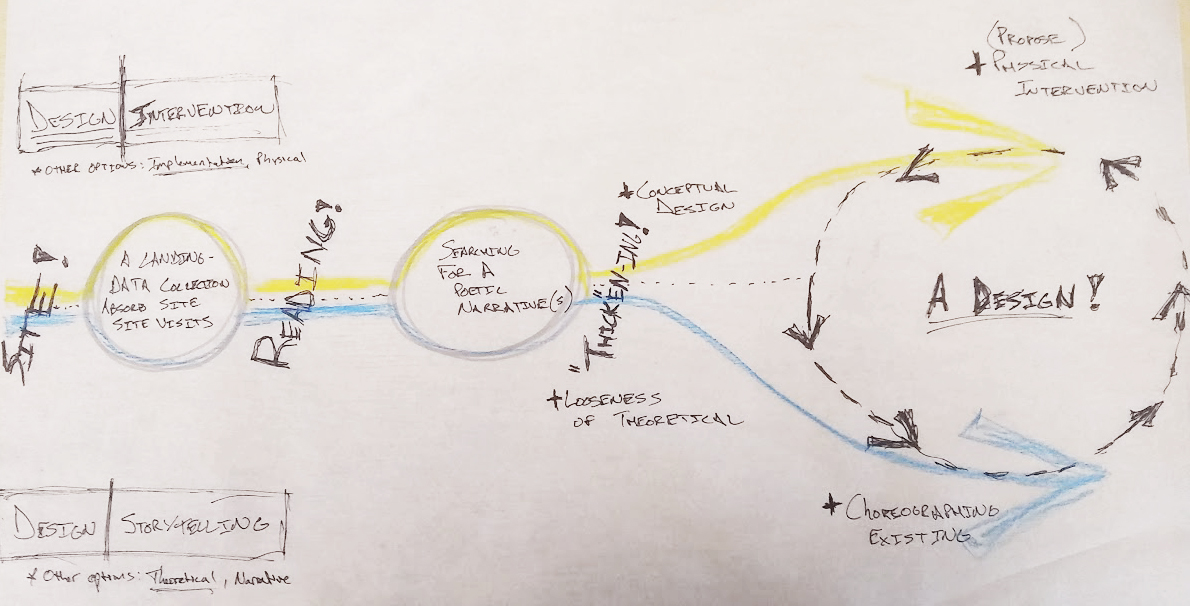 (PROPOSE)
+ PHYSICAL
INTERVENTION
DESIGN INTERVENTION
* OTHER OPTIONS: Implementation, Physical
+ CONCEPTUAL
DESIGN
SITE!
A LANDING-
DATA COLLECTION
ABSORB SITE
SITE VISITS
READING!
SEARCHING
FOR A
POETIC
NARRATIVE(S)
"THICKEN-ING!"
A DESIGN!
+ LOOSENESS
OF THEORETICAL
DESIGN STORYTELLING
* Other options: Theoretical, Narrative
+ CHOREOGRAPHING
EXISTING